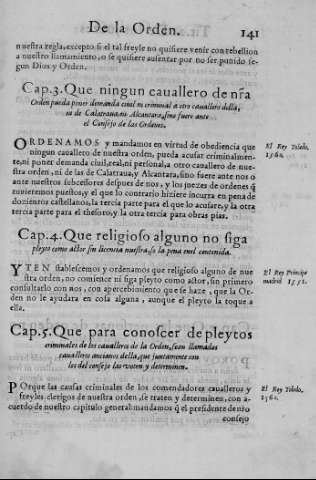 De la Orden. 141
nuestra regla, excepto si el tal freyle no quisiere venir con rebellion
a nuestro llamamiento, o se quisiere ausentar por no ser punido se-
gun Dios y Orden.
Cap.3. Que ningun cauallero de nr̃a
Orden pueda poner demanda ciuil ni criminal a otro cauallero della,
ni de Calatraua, ni Alcantara, sino fuere ante
el Consejo de las Ordenes.
ORDENAMOS y mandamos en virtud de obediencia que
ningun cauallero de nuestra orden, pueda acusar criminalmen-
te, ni poner demanda ciuil, real, ni personal, a otro cauallero de nue-
stra orden, ni de las de Calatraua, y Alcantara, sino fuere ante nos o
ante nuestros subcessores despues de nos, y los juezes de ordenes q̃
tuuieremos puestos, y el que lo contrario hiziere incurra en pena de
doze castellanos, la tercia parte para el que lo acusare, y la otra
tercia parte para el thesoro, y la otra tercia para obras pias.
El Rey Toledo,
1560.
Cap.4. Que religioso alguno no siga
pleyto como actor sin licencia nuestra, so la pena enel contenida.
YTEN stablescemos y ordenamos que religioso alguno de nue
stra orden, no comience ni siga pleyto como actor, sin primero
consultarlo con nos, con apercebimiento que se haze, que la Or-
den no le ayudara en cosa alguna, aunque el pleyto la toque a
ella.
El Rey Principe
madrid 1551.
Cap.5. Que para conoscer de pleytos
criminales de los caualleros de la Orden, sean llamados
caualleros ancianos della, que juntamente con
los del consejo los voten y determinen.
POrque las causas criminales de los comendadores caualleros y
freyles clerigos de nuestra orden, se traten y determinen, con a-
cuerdo de nuestro capitulo general: mandamos q̃ el presidente de nr̃o
consejo
El Rey Toledo,
1560.